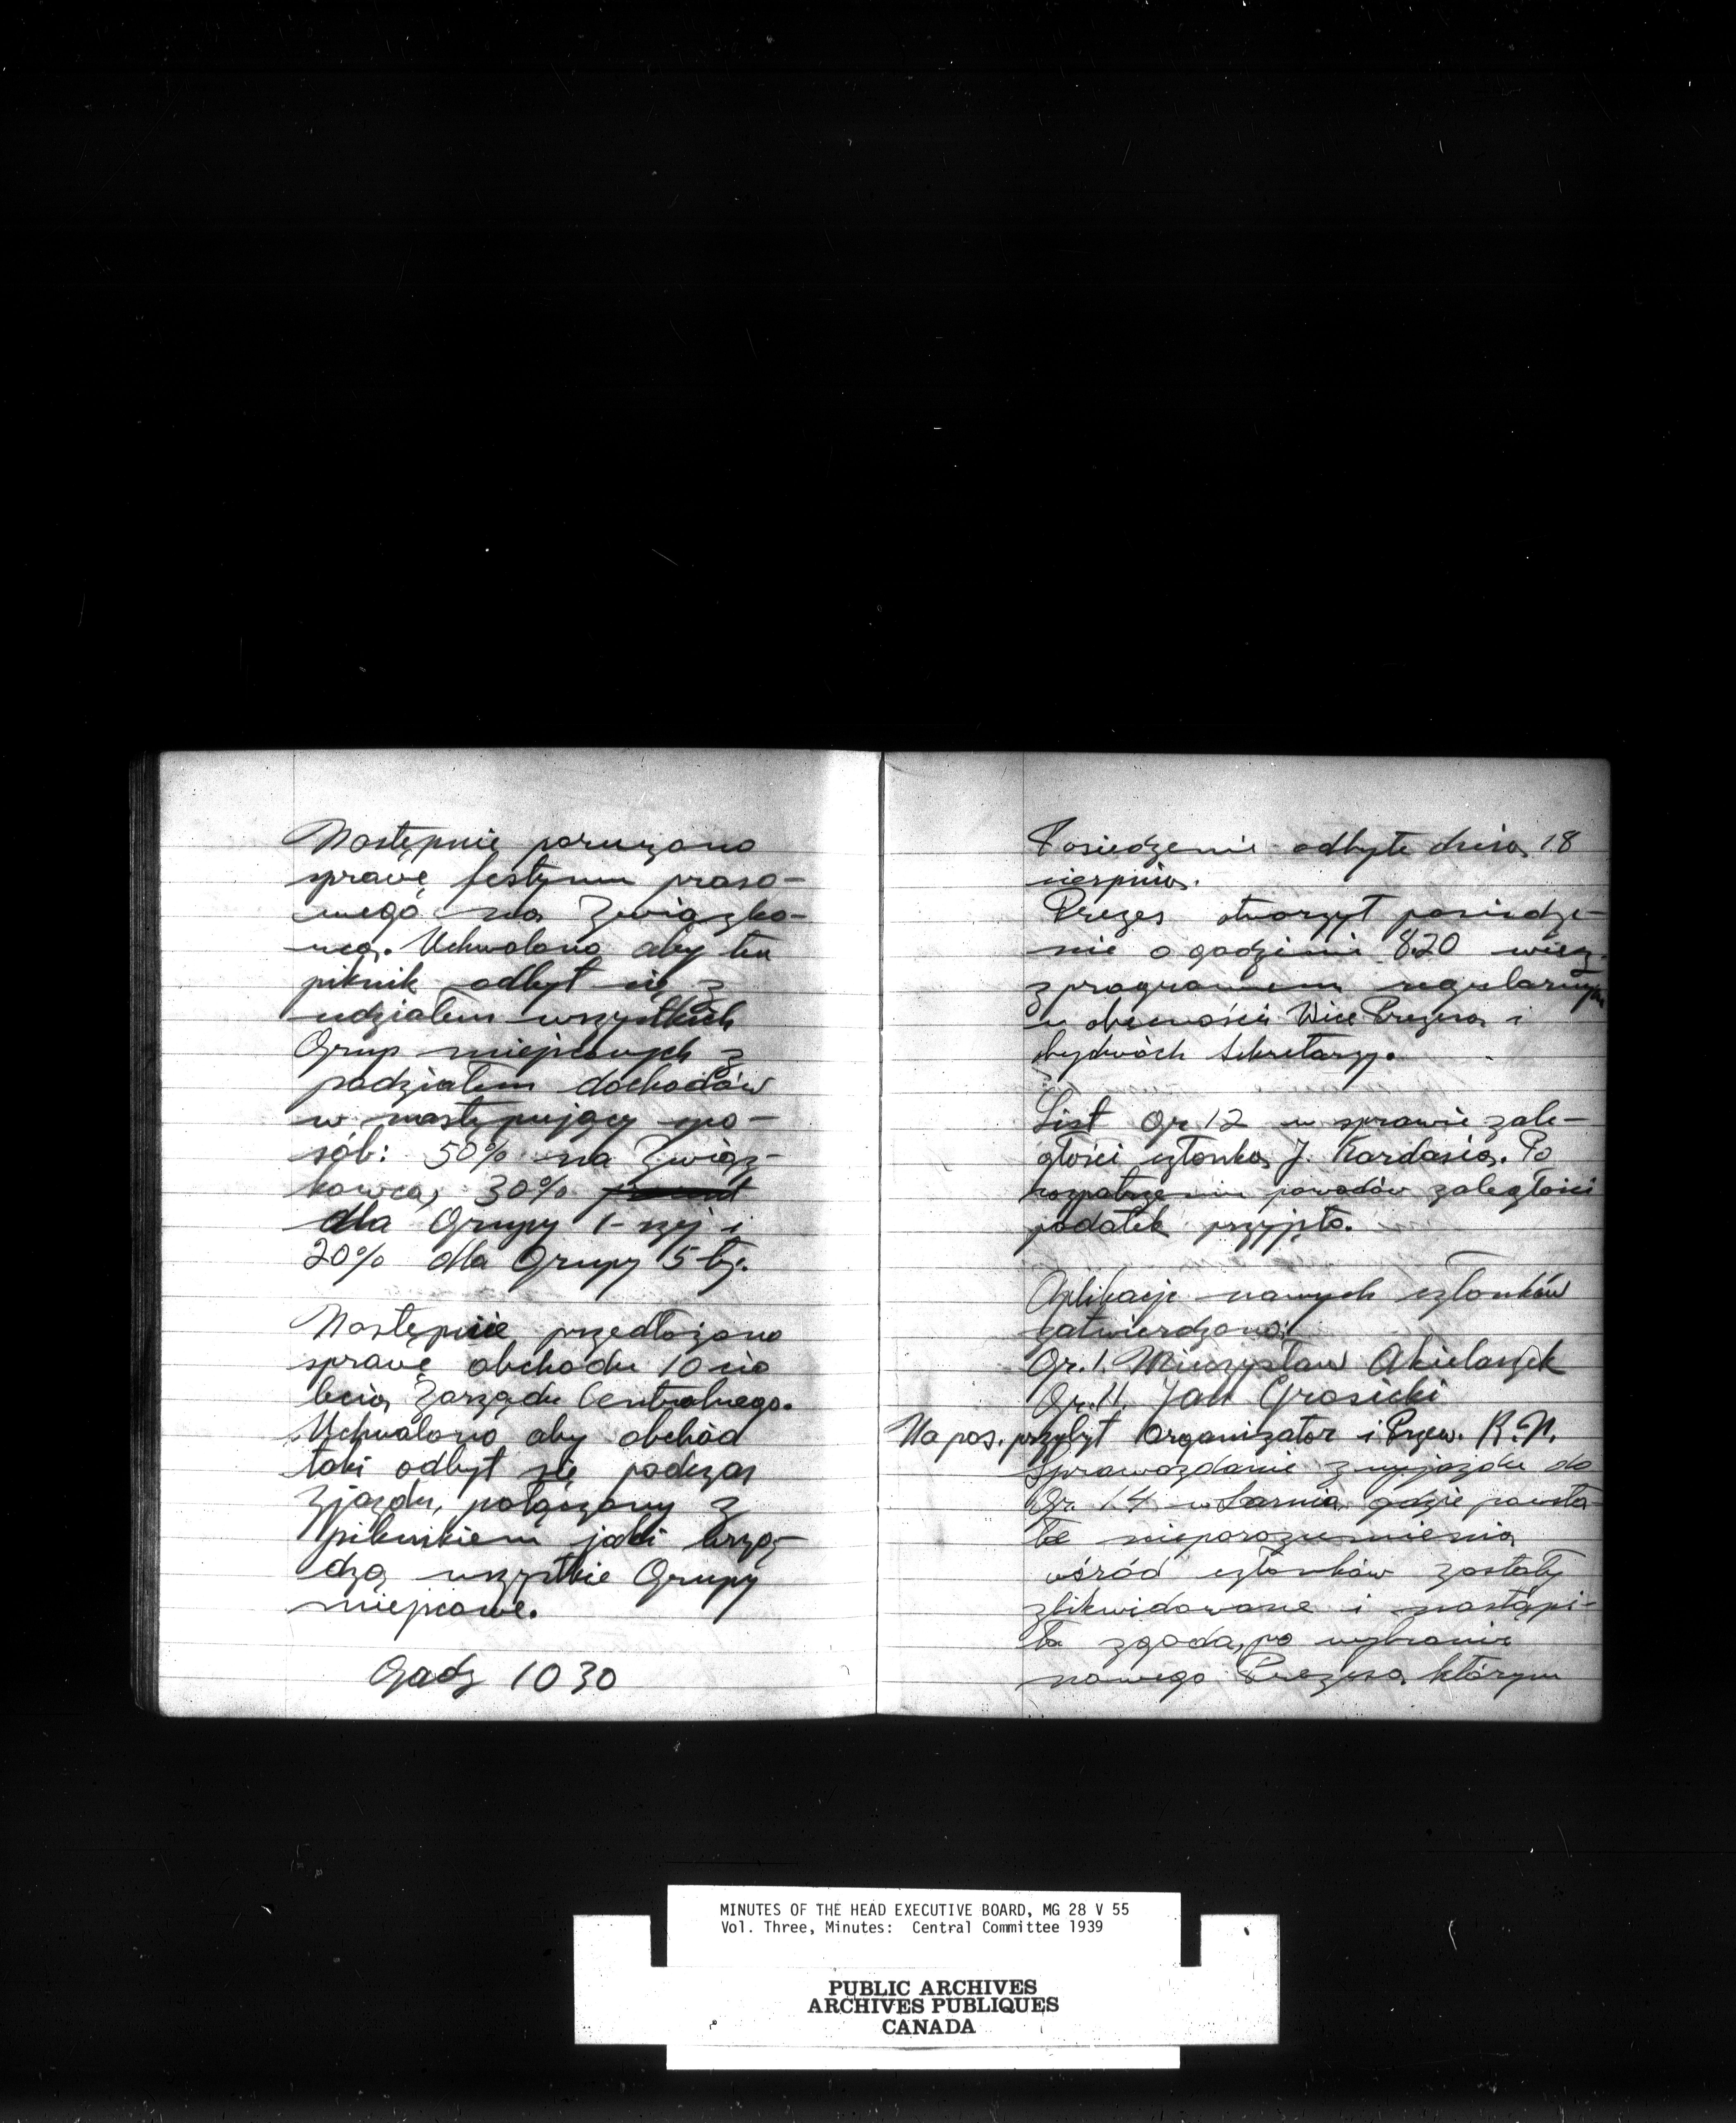 Następnie poruszono
sprawę festynu praso-
wego na Związko-
wca. Uchwalono aby ten
piknik odbył się z
udziałem wszystkich
Grup miejscowych z
podziałem dochodów
w następujący spo-
sób: 50% na Związ-
kowca, 30%
dla Grupy 1-szej i
20% dla Grupy 5-tej.
Następnie przedłożono
sprawę obchodu 10 cio
lecia Zarządu Centralnego.
Uchwalono aby obchód
taki odbył się podczas
Zjazdu, połączony z
piknikiem jaki urzą-
dzą wszystkie Grupy
miejscowe.
Godz 10 30
Posiedzenie odbyte dnia 18
sierpnia.
Prezes otworzył posiedze-
nie o godzinie 8.20 wiecz.
z programem regularnym
w obecności Wice Prezesa i
obydwóch Sekretarzy.
List Gr 12 w sprawie zale-
głości członka J. Kardasia. Po
rozpatrzeniu powodów zaległości
podatek przyjęto.
Aplikacje nowych członków
zatwierdzono:
Gr. 1. Mieczysław Akielaszek
Gr. 11. Jan Grosicki
Na pos. przybył Organizator i Przew. R. N.
Sprawozdanie z wyjazdu do
Gr. 14 w Sarnia, gdzie powsta-
łe nieporozumienia
wśród członków zostały
zlikwidowane i nastąpi-
ła zgoda, po wybraniu
nowego Prezesa którym
MINUTES OF THE HEAD EXECUTIVE BOARD, MG 28 V 55
Vol. Three, Minutes: Central Committee 1939
PUBLIC ARCHIVES
ARCHIVES PUBLIQUES
CANADA